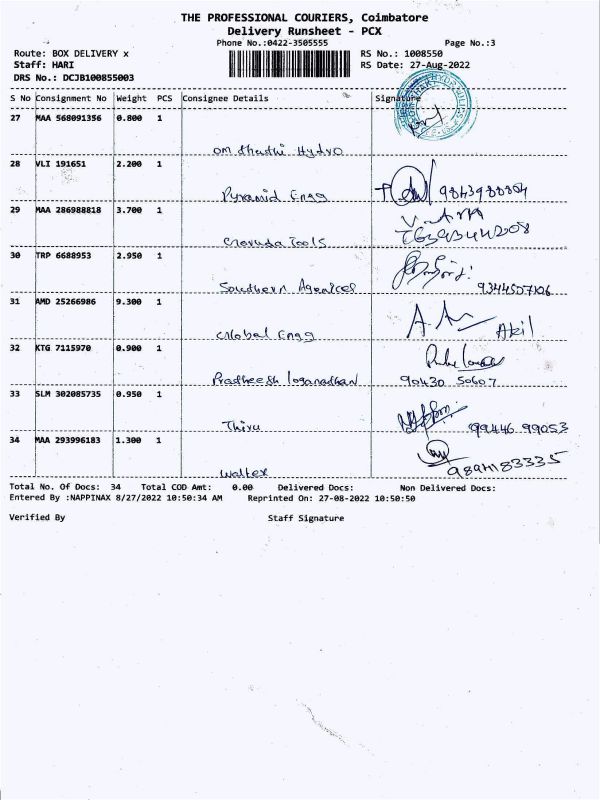 THE PROFESSIONAL COURIERS, Coimbatore
Delivery Runsheet - PCX
Phone No.:0422-3505555 Page No.:3
Route: BOX DELIVERY x RS No.: 1008550
Staff: HARI RS Date: 27-Aug-2022
DRS No.: DCJB100855003
S No Consignment No Weight PCS Consignee Details Signature
27 MAA 568091356 0.800 1
Hydro
28 VLI 191651 2.200 1
Pyramid Engg 9843988804
29 MAA 286988818 3.700 1
Tools
30 TRP 6688953 2.950 1
Southern Agencies 9344507106
31 AMD 25266986 9.300 1
Global Engg Akil
32 KTG 7115970 0.900 1
Pradheesh loganadhan 90430 50607
33 SLM 302085735 0.950 1
Thiru 99446 99053
34 MAA 293996183 1.300 1
Walter 9894183335
Total No. Of Docs: 34 Total COD Amt: 0.00 Delivered Docs: Non Delivered Docs:
Entered By :NAPPINAX 8/27/2022 10:50:34 AM Reprinted On: 27-08-2022 10:50:50
Verified By Staff Signature